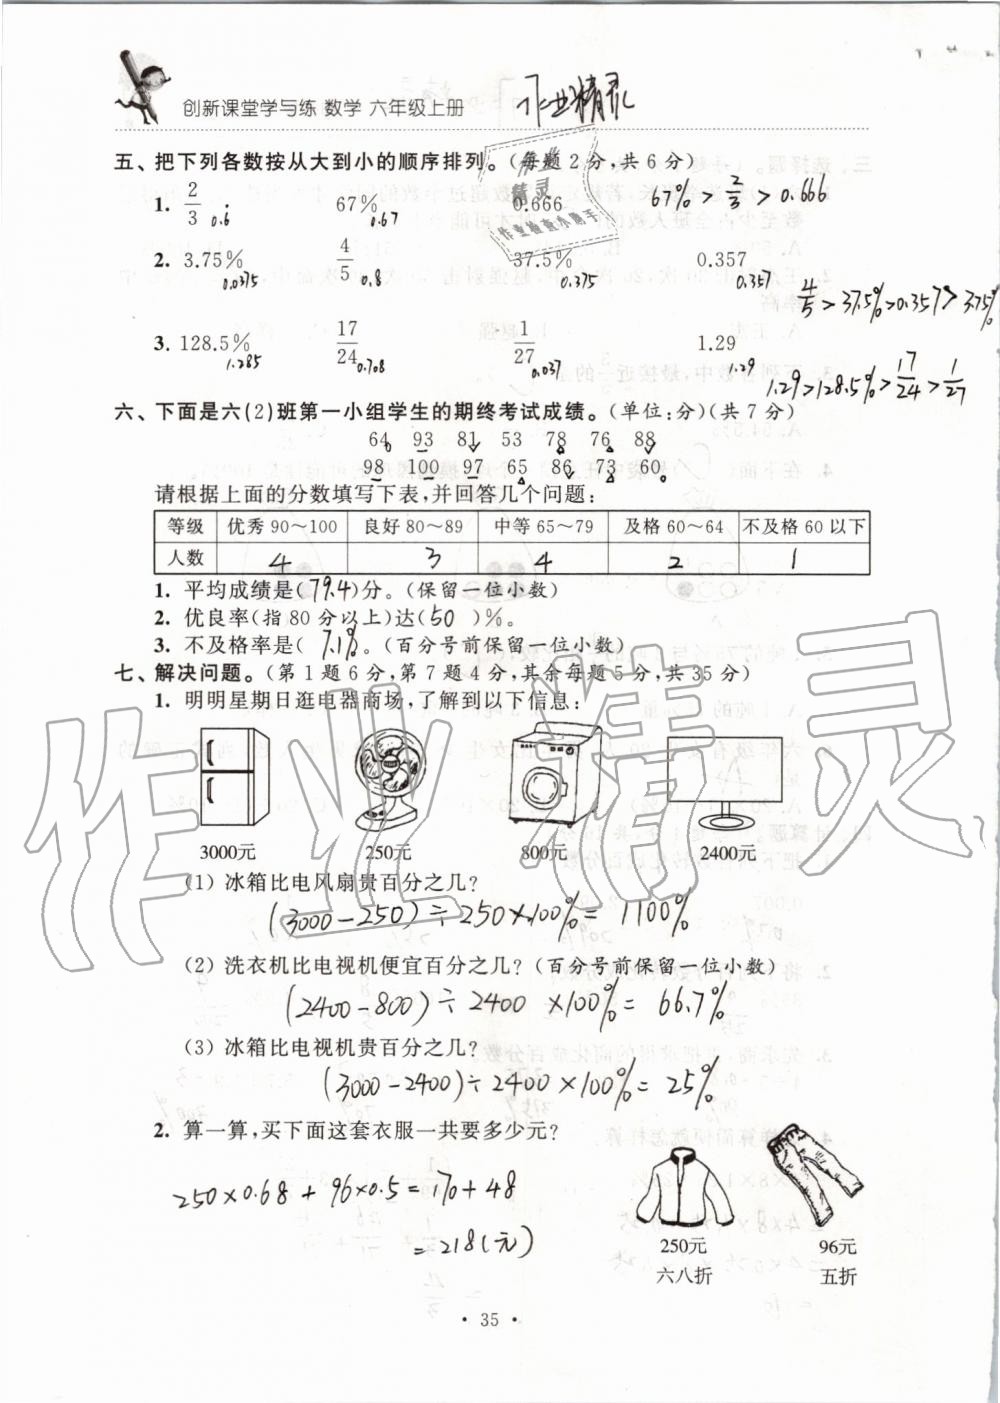 创新课堂学与练 数学 六年级上册 作业精灵
五、把下列各数按从大到小的顺序排列。(每题2分,共6分)
1. 2/3 0.6̇ 67% 0.67 0.666 67% > 2/3 > 0.666
2. 3.75% 0.0375 4/5 0.8 37.5% 0.375 0.357 0.357
4/5 > 37.5% > 0.357 > 3.75%
3. 128.5% 1.285 17/24 0.708 1/27 0.037 1.29 1.29
1.29 > 128.5% > 17/24 > 1/27
六、下面是六(2)班第一小组学生的期终考试成绩。(单位:分)(共7分)
64 93 81 53 78 76 88
98 100 97 65 86 73 60
请根据上面的分数填写下表,并回答几个问题:
等级 优秀90～100 良好80～89 中等65～79 及格60～64 不及格60以下
人数 4 3 4 2 1
1. 平均成绩是(79.4)分。(保留一位小数)
2. 优良率(指80分以上)达(50 )%。
3. 不及格率是( 7.1%。(百分号前保留一位小数)
七、解决问题。(第1题6分,第7题4分,其余每题5分,共35分)
1. 明明星期日逛电器商场,了解到以下信息:
3000元 250元 800元 2400元
(1) 冰箱比电风扇贵百分之几?
(3000-250)÷250×100%=1100%
(2) 洗衣机比电视机便宜百分之几?(百分号前保留一位小数)
(2400-800)÷2400×100%=66.7%
(3) 冰箱比电视机贵百分之几?
(3000-2400)÷2400×100%=25%
2. 算一算,买下面这套衣服一共要多少元?
250×0.68+96×0.5=170+48
=218(元)
250元 96元
六八折 五折
• 35 •
作业精灵
作业
精灵
作业检查小助手